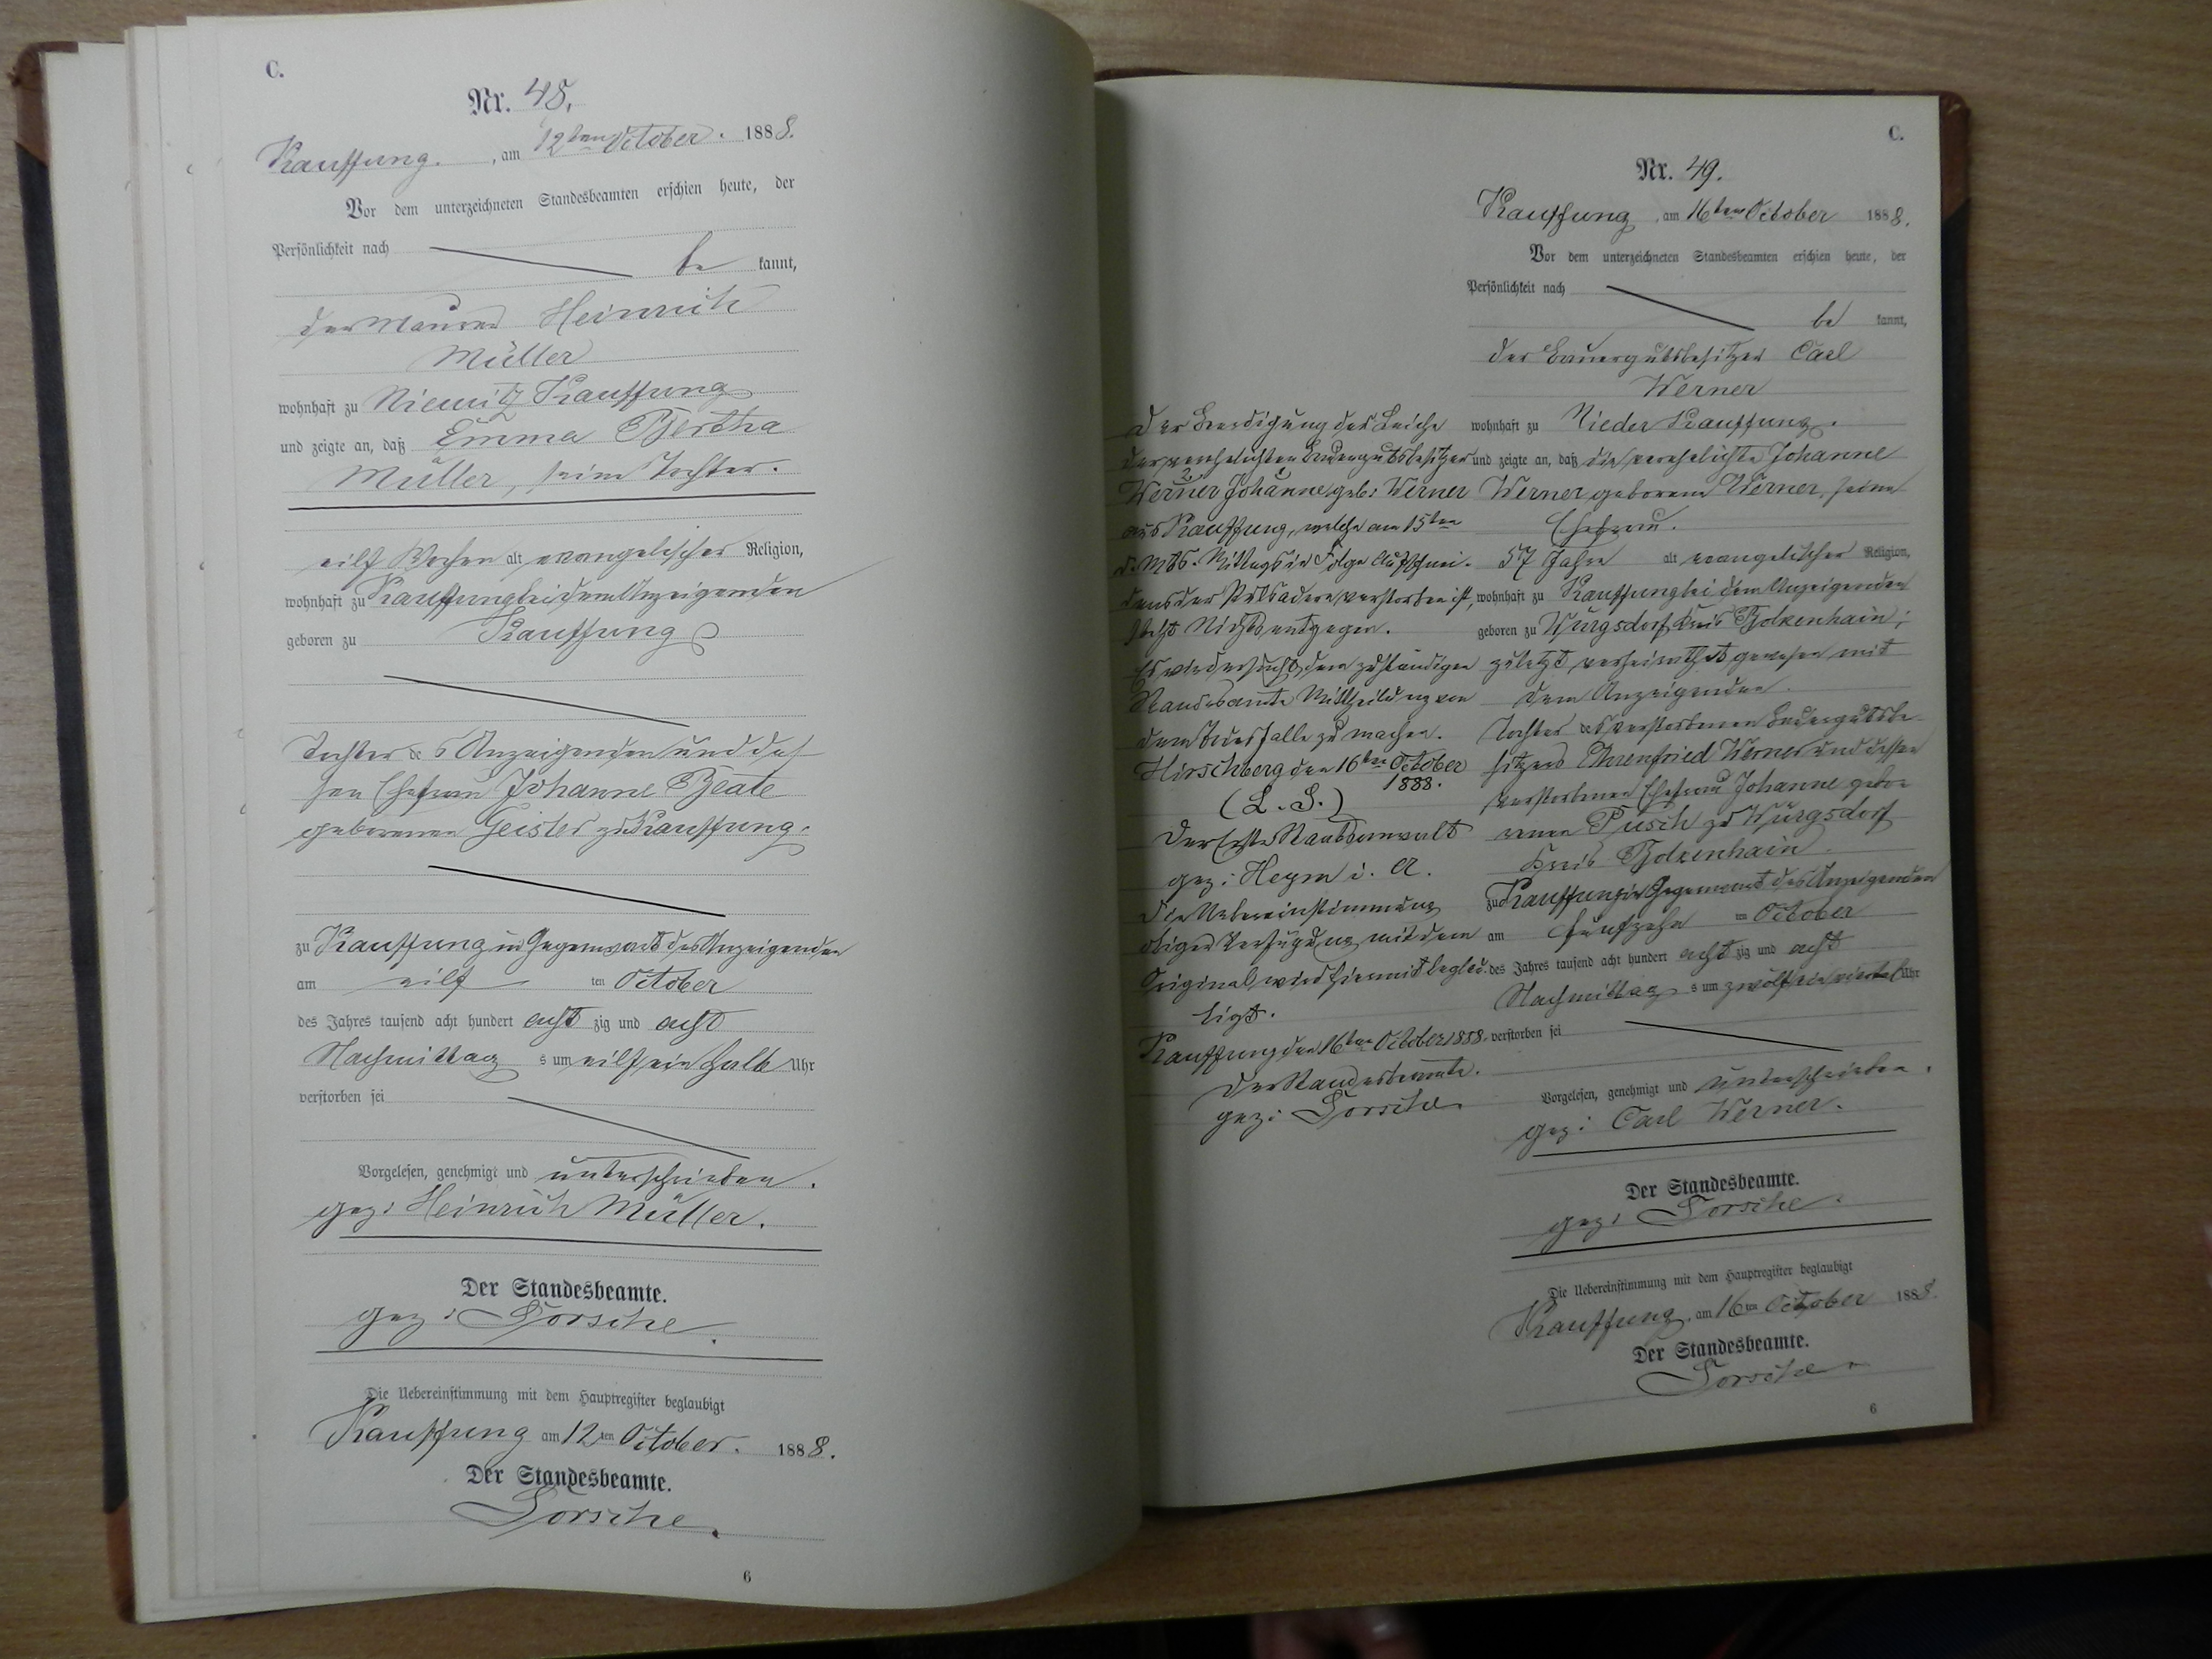 C.
Nr. 48.
Kauffung, am 12ten October 1888.
Vor dem unterzeichneten Standesbeamten erschien heute, der
Persönlichkeit nach
be kannt,
der Maurer Heinrich
Müller
wohnhaft zu Niemitz Kauffung
und zeigte an, daß Emma Bertha
Müller, seine Tochter.
eilf Wochen alt, evangelischer Religion,
wohnhaft zu Kauffung bei dem Anzeigenden
geboren zu Kauffung
Tochter des Anzeigenden und des-
sen Ehefrau Johanne Beate
geborenen Geisler zu Kauffung.
zu Kauffung in Gegenwart des Anzeigenden
am eilf ten October
des Jahres tausend acht hundert acht zig und acht
Nachmittags um eilf ein halb Uhr
verstorben sei
Vorgelesen, genehmigt und unterschrieben.
gez: Heinrich Müller.
Der Standesbeamte.
gez: Torsche.
Die Uebereinstimmung mit dem Hauptregister beglaubigt
Kauffung am 12ten October. 1888.
Der Standesbeamte.
Torsche.
6
C.
Nr. 49.
Kauffung, am 16ten October 1888.
Vor dem unterzeichneten Standesbeamten erschien heute, der
Persönlichkeit nach
be kannt,
der Bauergutsbesitzer Carl
Werner
wohnhaft zu Nieder Kauffung.
und zeigte an, daß die verehelichte Johanne
Werner geborene Werner, seine
Ehefrau.
57 Jahre alt evangelischer Religion,
wohnhaft zu Kauffung bei dem Anzeigenden
geboren zu Würgsdorf Kreis Bolkenhain;
zuletzt verheirathet gewesen mit
dem Anzeigenden.
Tochter des verstorbenen Bauergutsbe-
sitzers Ehrenfried Werner und dessen
verstorbenen Ehefrau Johanne gebor
renen Püsch zu Würgsdorf
Kreis Bolkenhain.
zu Kauffung in Gegenwart des Anzeigenden
am fünfzehn ten October
des Jahres tausend acht hundert acht zig und acht
Nachmittags um zwölf ein viertel Uhr
verstorben sei
Vorgelesen, genehmigt und unterschrieben.
gez: Carl Werner.
Der Standesbeamte.
gez: Torsche.
Die Uebereinstimmung mit dem Hauptregister beglaubigt
Kauffung, am 16ten October 1888.
Der Standesbeamte.
Torsche
6
Der Beerdigung der Leiche
der verehelichten Bauergutsbesitzer
Werner Johanne geb: Werner
aus Kauffung, welche am 15ten
d. Mts. Mittags in Folge Aufschnei-
dens der Pulsadern verstorben ist,
steht Nichts entgegen.
Es wird ersucht, dem zuständigen
Standesamte Mittheilung von
dem Todesfalle zu machen.
Hirschberg den 16ten October
1888.
(L. S.)
Der Erste Staatsanwalt
gez: Heym i. A.
Die Uebereinstimmung
obiger Verfügung mit dem
Original wird hiermit beglau-
bigt.
Kauffung den 16ten October 1888.
Der Standesbeamte.
gez: Torsche